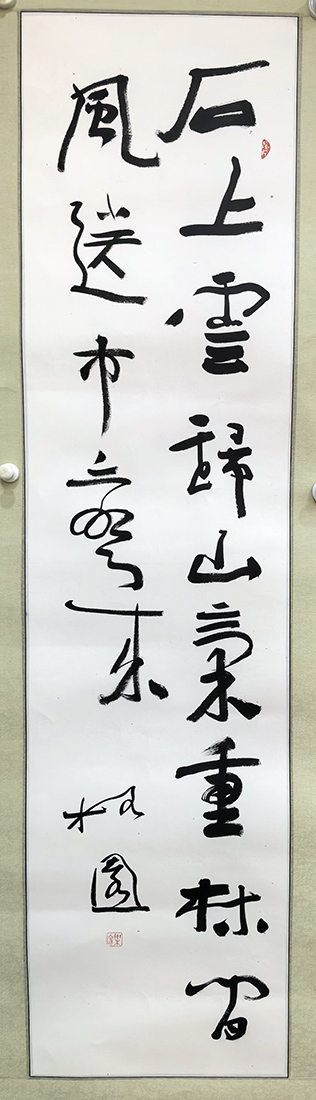 石上雲歸山氣重林間
風送市聲來
園